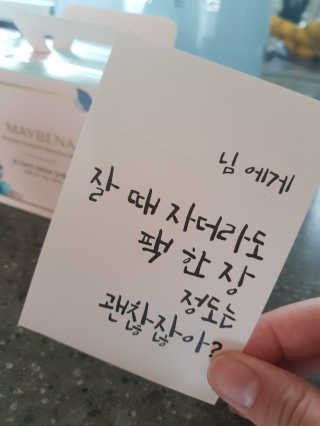 MAYBENA
님에게
잘 때 자더라도
팩 한 장
정도는
괜찮잖아?